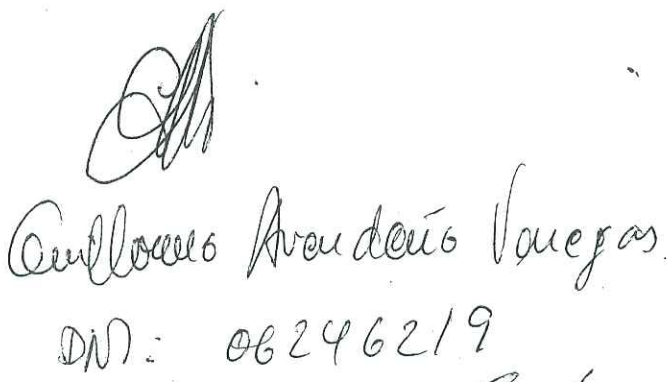 Guillermo Avendaño Vanegas.
DNI: 06246219